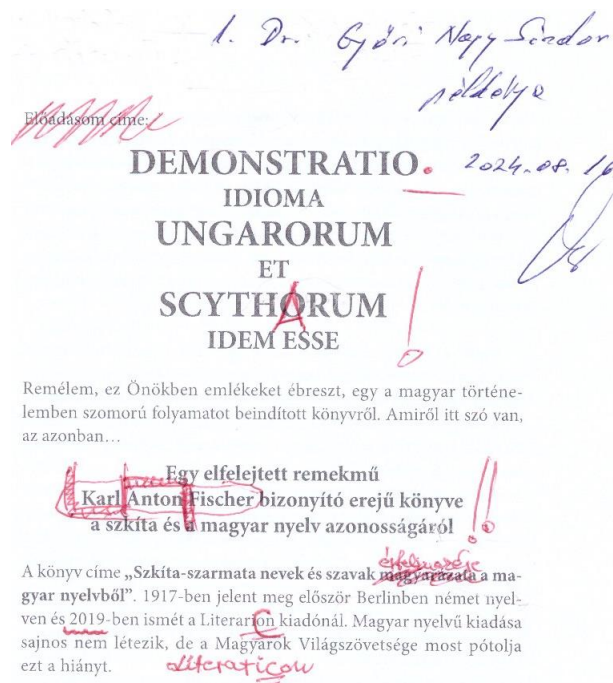 1. Dr. Győri Nagy Sándor
példánya
Előadásom címe:
DEMONSTRATIO.
2024.08.16
IDIOMA
UNGARORUM
ET
SCYTHORUM
A
!
IDEM ESSE
Remélem, ez Önökben emlékeket ébreszt, egy a magyar történe-
lemben szomorú folyamatot beindított könyvről. Amiről itt szó van,
az azonban…
Egy elfelejtett remekmű
Karl Anton Fischer bizonyító erejű könyve
!!
a szkíta és a magyar nyelv azonosságáról
A könyv címe „Szkíta-szarmata nevek és szavak magyarázata a ma-
gyar nyelvből”. 1917-ben jelent meg először Berlinben német nyel-
ven és 2019-ben ismét a Literarion kiadónál. Magyar nyelvű kiadása
C
sajnos nem létezik, de a Magyarok Világszövetsége most pótolja
ezt a hiányt.
Literaticon